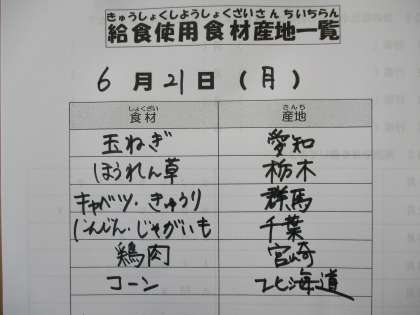 きゅうしょくしようしょくざいさんちいちらん
給食使用食材産地一覧
6月21日(月)
しょくざい さんち
食材 産地
玉ねぎ 愛知
ほうれん草 栃木
キャベツ・きゅうり 群馬
にんじん・じゃがいも 千葉
鶏肉 宮崎
コーン 北海道